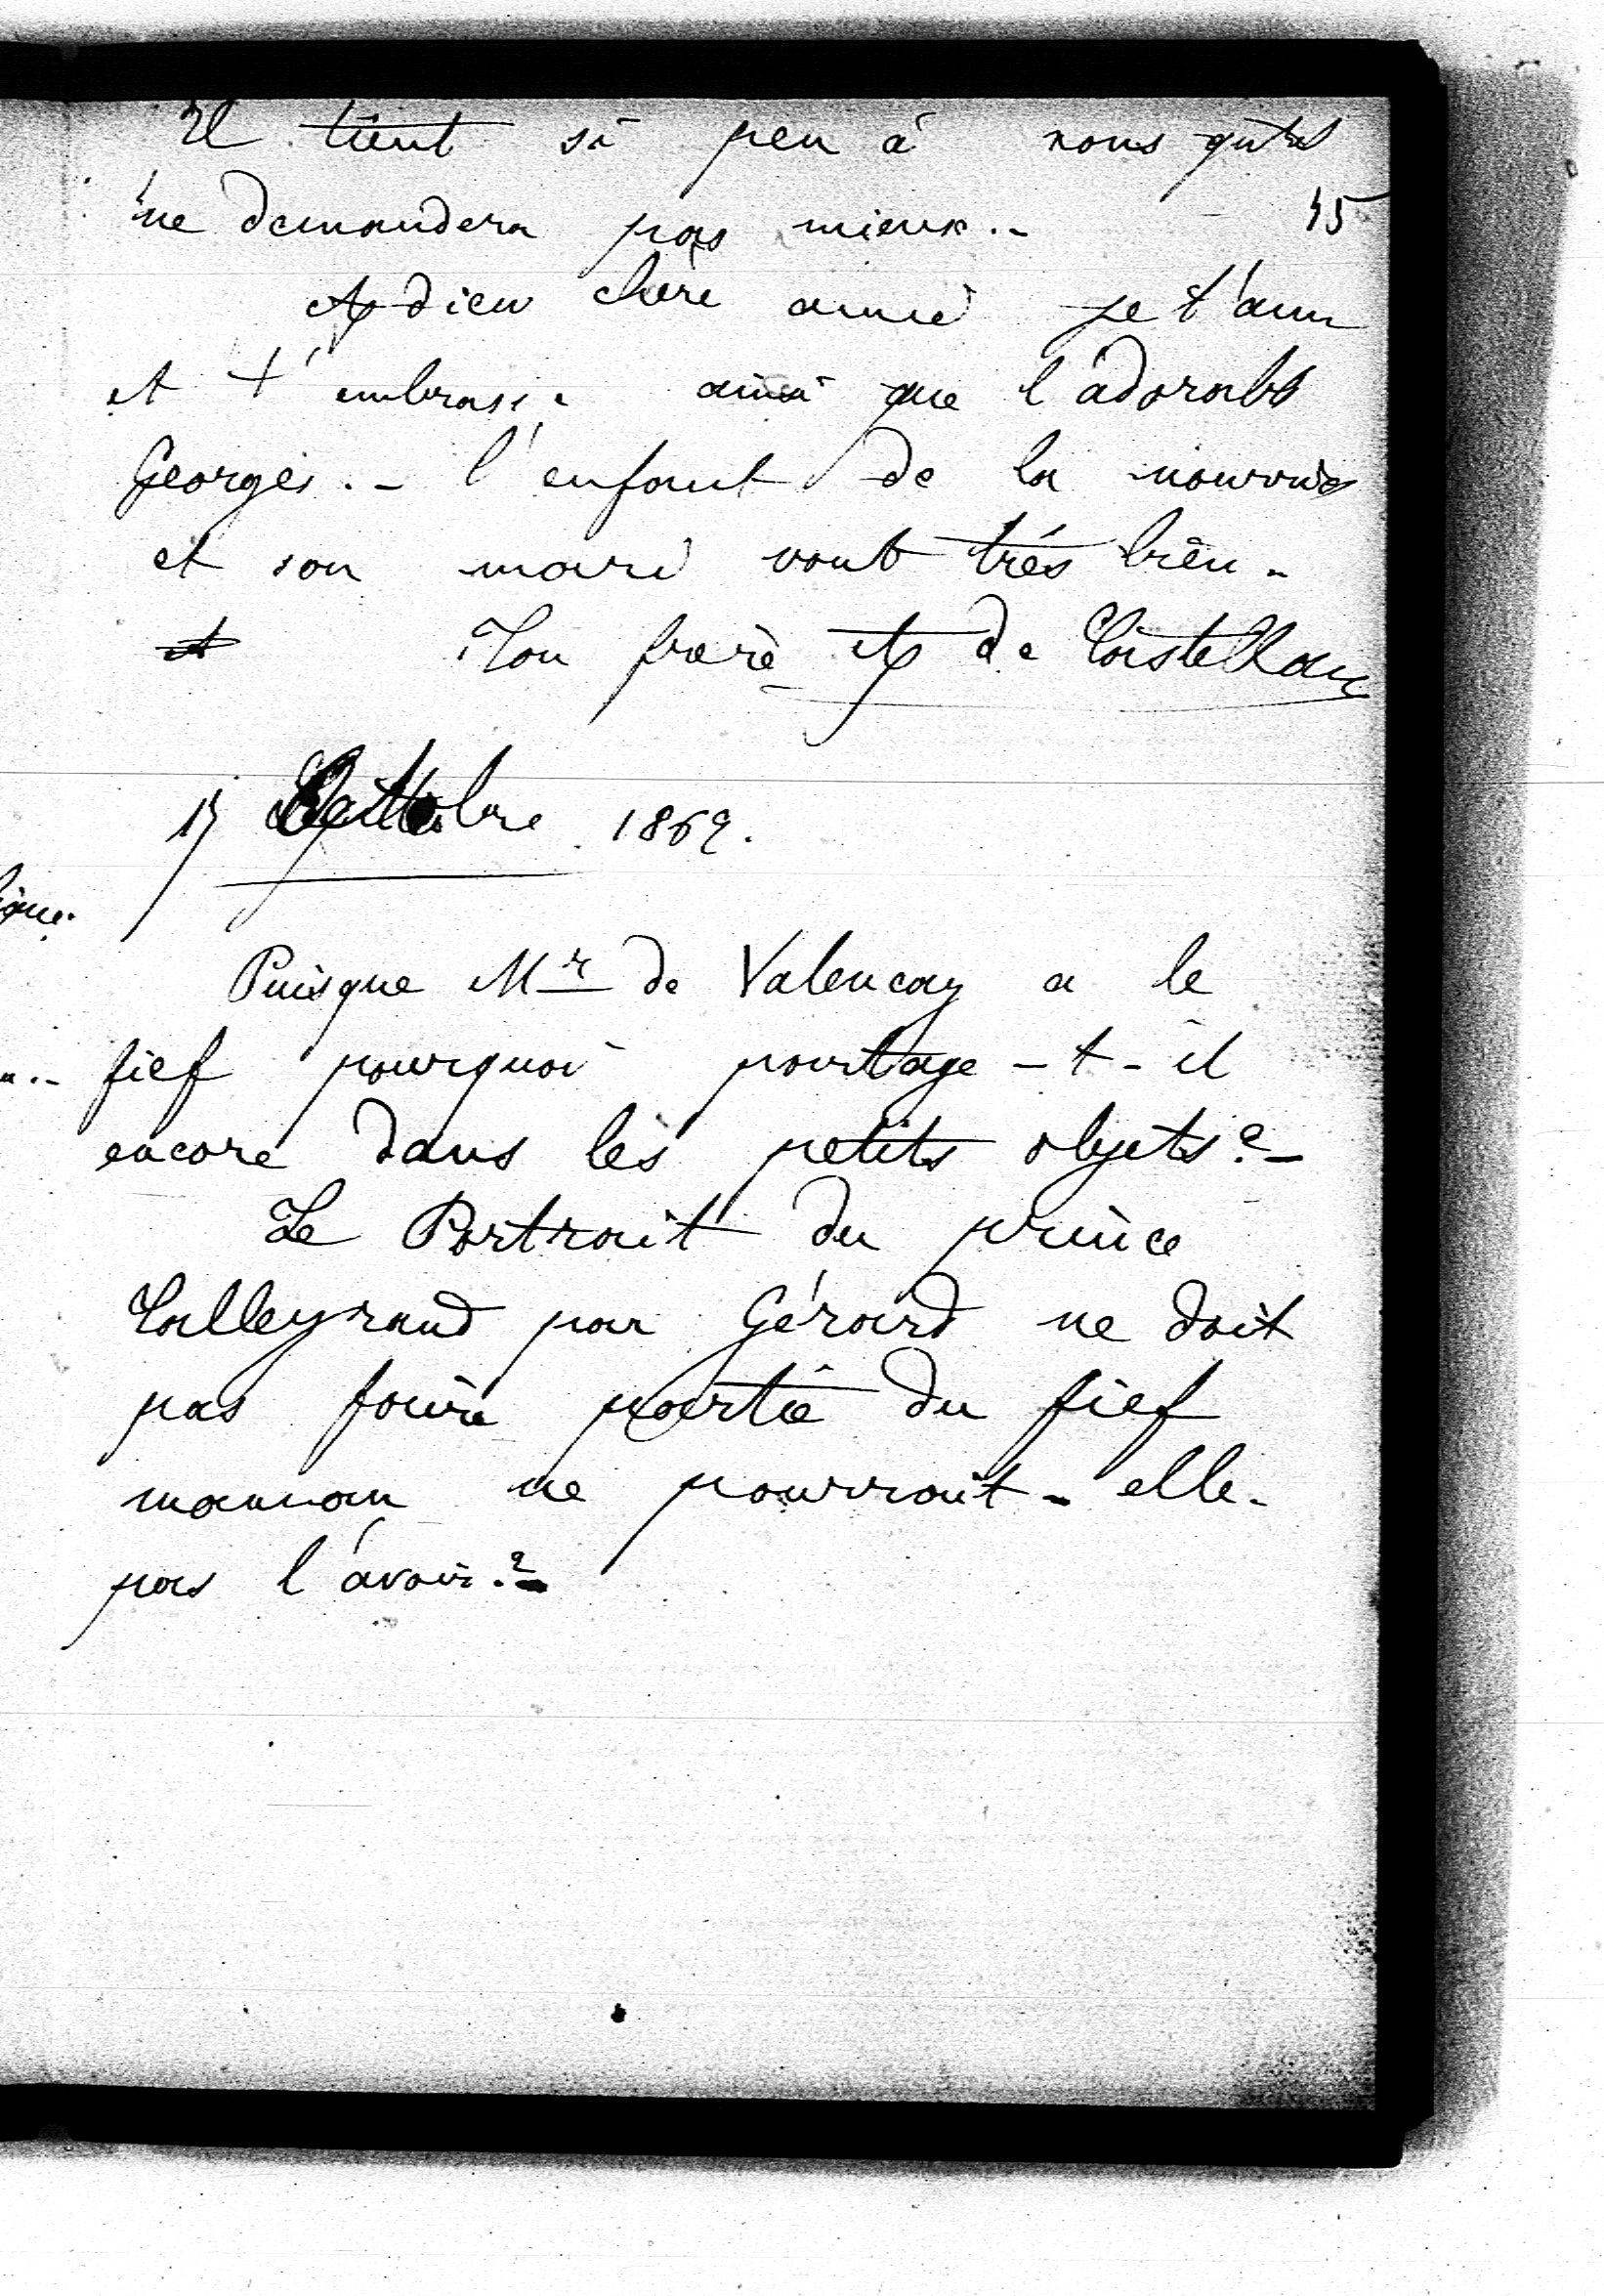 Il tient si peu à nous qu'il
ne demandera pas mieux.-
45
Adieu chère amie je t'aime
et t'embrasse ainsi que l'adorable
Georges.- l'enfant de la nourrice
et son mari vont très bien.-
et Ton frère A de Castellane
15 Octobre 1869.
Puisque Mr de Valencay a le
fief pourquoi partage-t-il
encore dans les petits objets?-
Le Portrait du prince
Talleyrand par Gérard ne doit
pas faire partie du fief
maman ne pourrait-elle-
pas l'avoir?-